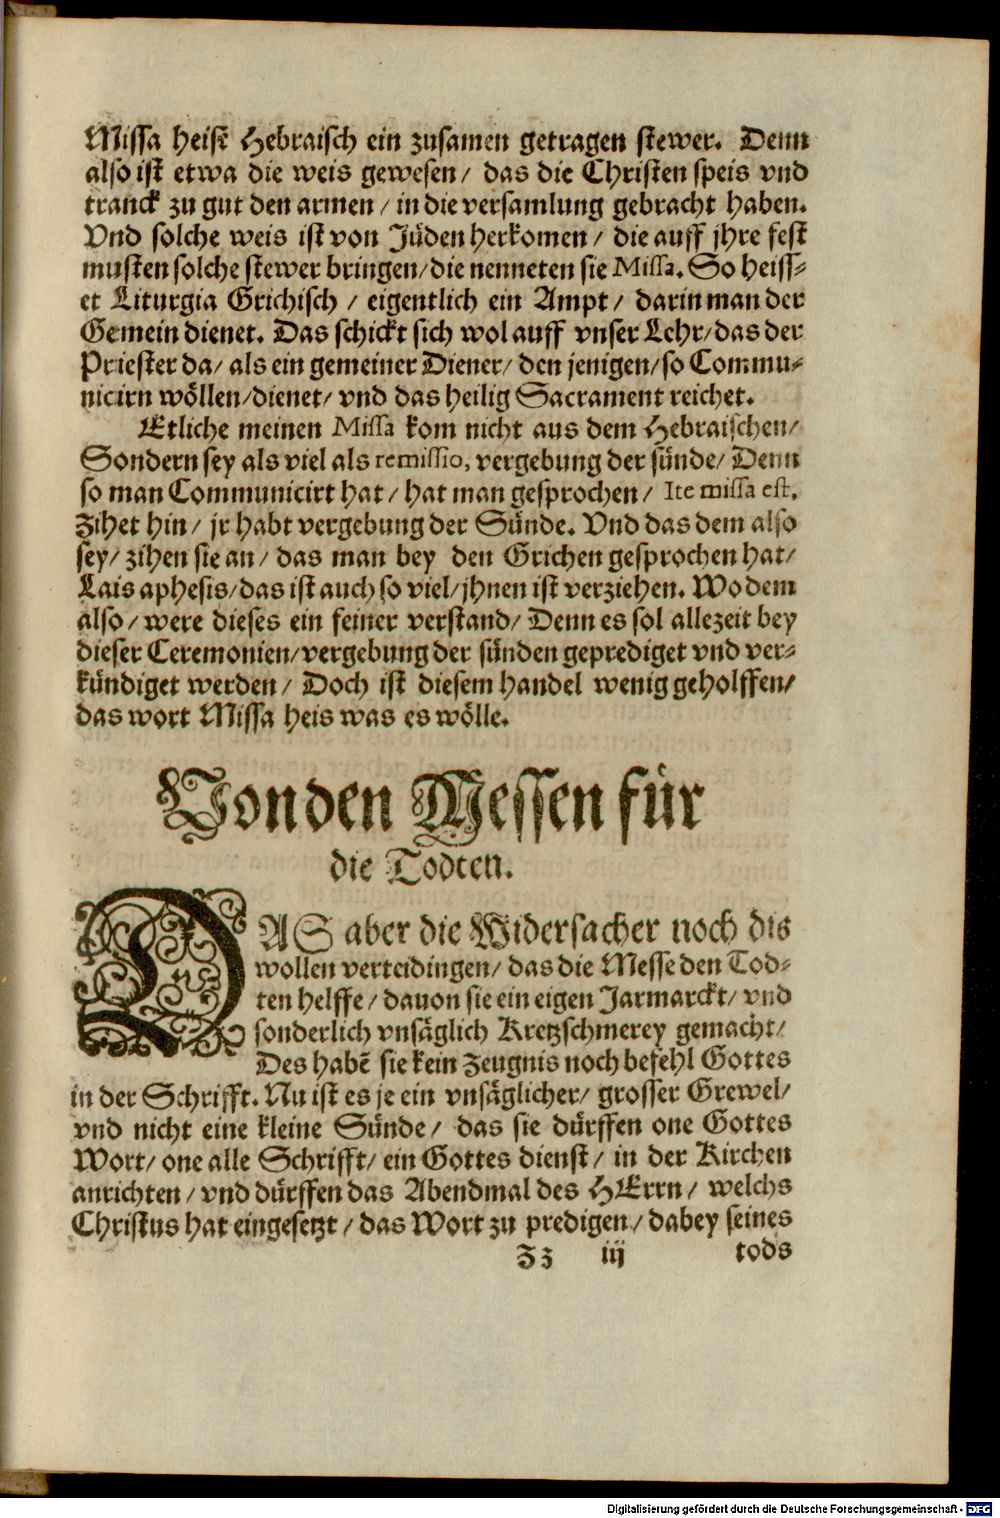 Missa heist Hebraisch ein zusamen getragen stewer. Denn
also ist etwa die weis gewesen / das die Christen speis vnd
tranck zu gut den armen / in die versamlung gebracht haben.
Vnd solche weis ist von Jüden herkomen / die auff jhre fest
musten solche stewer bringen / die nenneten sie Missa. So heiss-
et Liturgia Grichisch / eigentlich ein Ampt / darin man der
Gemein dienet. Das schickt sich wol auff vnser Lehr / das der
Priester da / als ein gemeiner Diener / den jenigen / so Commu-
nicirn wöllen / dienet / vnd das heilig Sacrament reichet.
Etliche meinen Missa kom nicht aus dem Hebraischen /
Sondern sey als viel als remissio, vergebung der sünde / Denn
so man Communicirt hat / hat man gesprochen / Ite missa est.
Zihet hin / jr habt vergebung der Sünde. Vnd das dem also
sey / zihen sie an / das man bey den Grichen gesprochen hat /
Lais aphesis / das ist auch so viel / jhnen ist verziehen. Wo dem
also / were dieses ein feiner verstand / Denn es sol allezeit bey
dieser Ceremonien / vergebung der sünden geprediget vnd ver-
kündiget werden / Doch ist diesem handel wenig geholffen /
das wort Missa heis was es wölle.
Von den Messen für
die Todten.
DAS aber die Widersacher noch dis
wollen verteidingen / das die Messe den Tod-
ten helffe / dauon sie ein eigen Jarmarckt / vnd
sonderlich vnsäglich Kretzschmerey gemacht /
Des habē sie kein Zeugnis noch befehl Gottes
in der Schrifft. Nu ist es je ein vnsäglicher / grosser Grewel /
vnd nicht eine kleine Sünde / das sie dürffen one Gottes
Wort / one alle Schrifft / ein Gottes dienst / in der Kirchen
anrichten / vnd dürffen das Abendmal des HErrn / welchs
Christus hat eingesetzt / das Wort zu predigen / dabey seines
Zz iij tods
Digitalisierung gefördert durch die Deutsche Forschungsgemeinschaft - DFG